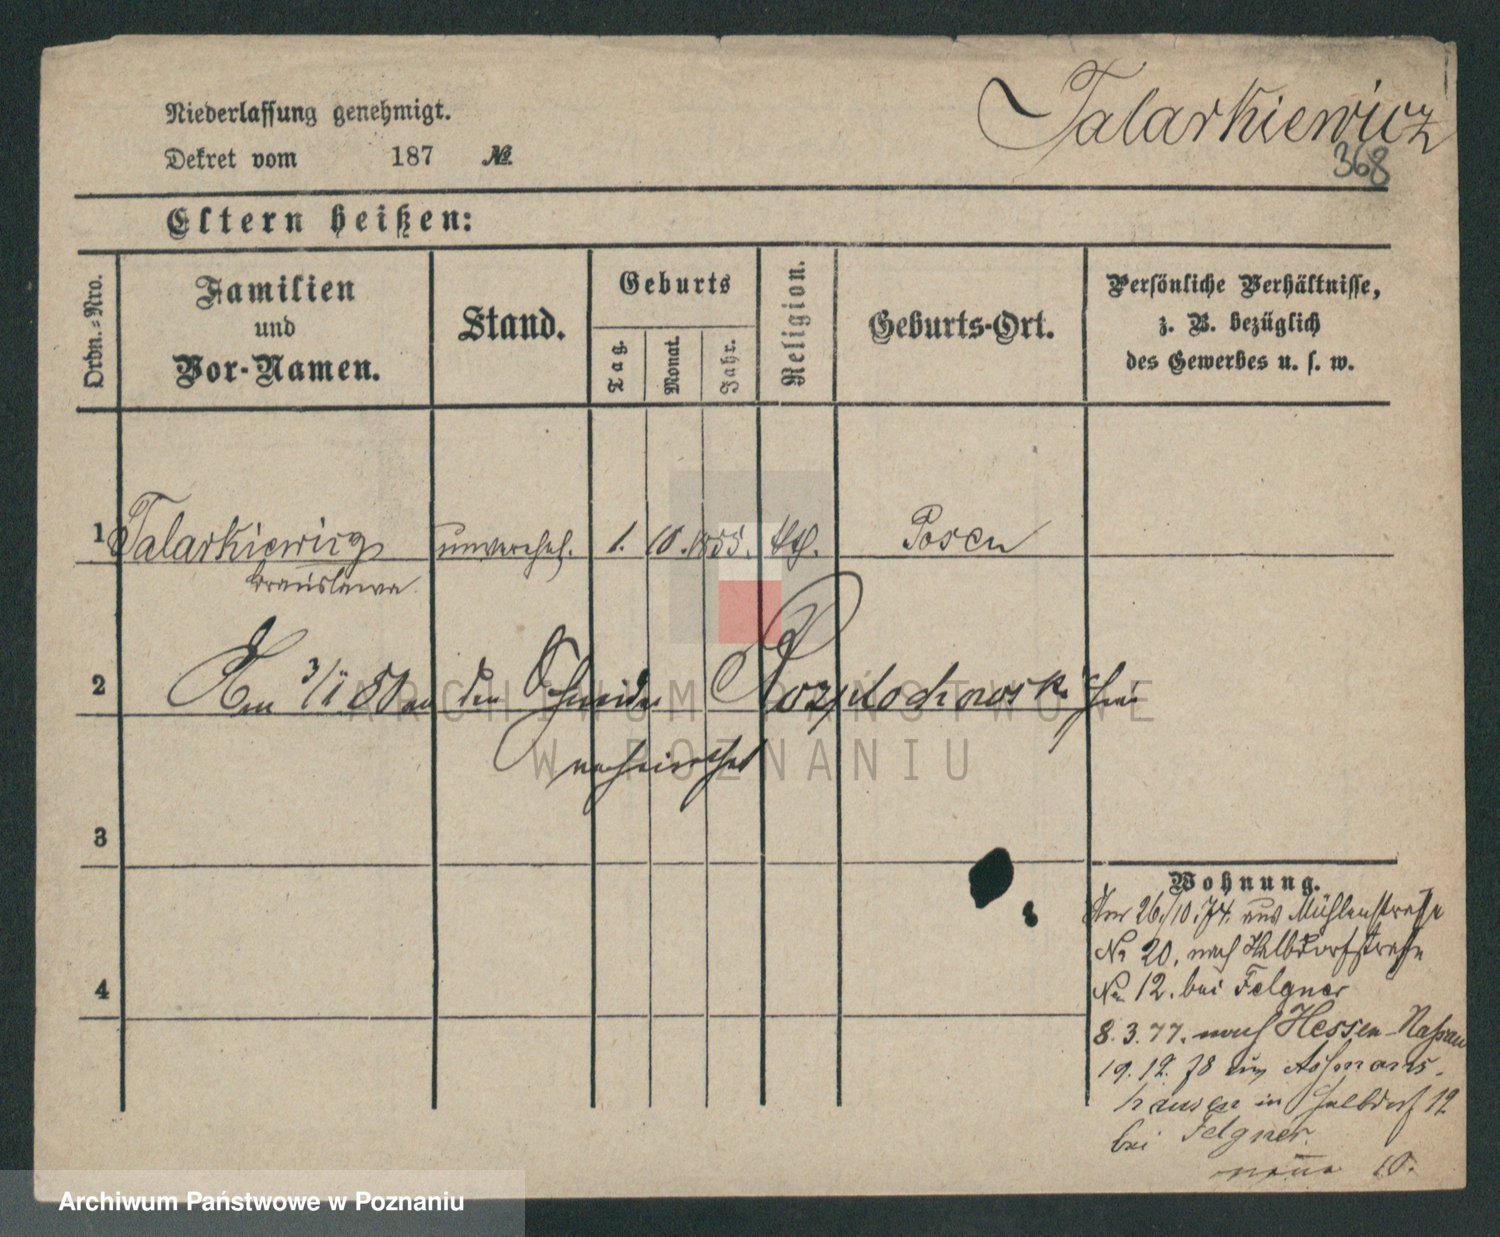 Talarkiewicz
368
Niederlassung genehmigt.
Dekret vom 187 №
Eltern heißen:
Ordn.-Nro.
Familien
und
Vor-Namen.
Stand.
Geburts
Tag.
Monat.
Jahr.
Religion.
Geburts-Ort.
Persönliche Verhältnisse,
z. B. bezüglich
des Gewerbes u. s. w.
1 Talarkiewicz unverehel. 1. 10. 1855. kth. Posen
2 Am 3/ 80 an den Schneider hier
verheirathet
3
4
Wohnung.
Am 26/10.74. aus Mühlenstraße
No 20. nach Halbdorfstraße
No 12. bei Felgner
8.3.77. nach Hessen-Nassau
19.12.78 aus Assmanns-
hausen in Halbdorf 12
bei Felgner
10.
ARCHIWUM PAŃSTWOWE
W POZNANIU
Archiwum Państwowe w Poznaniu